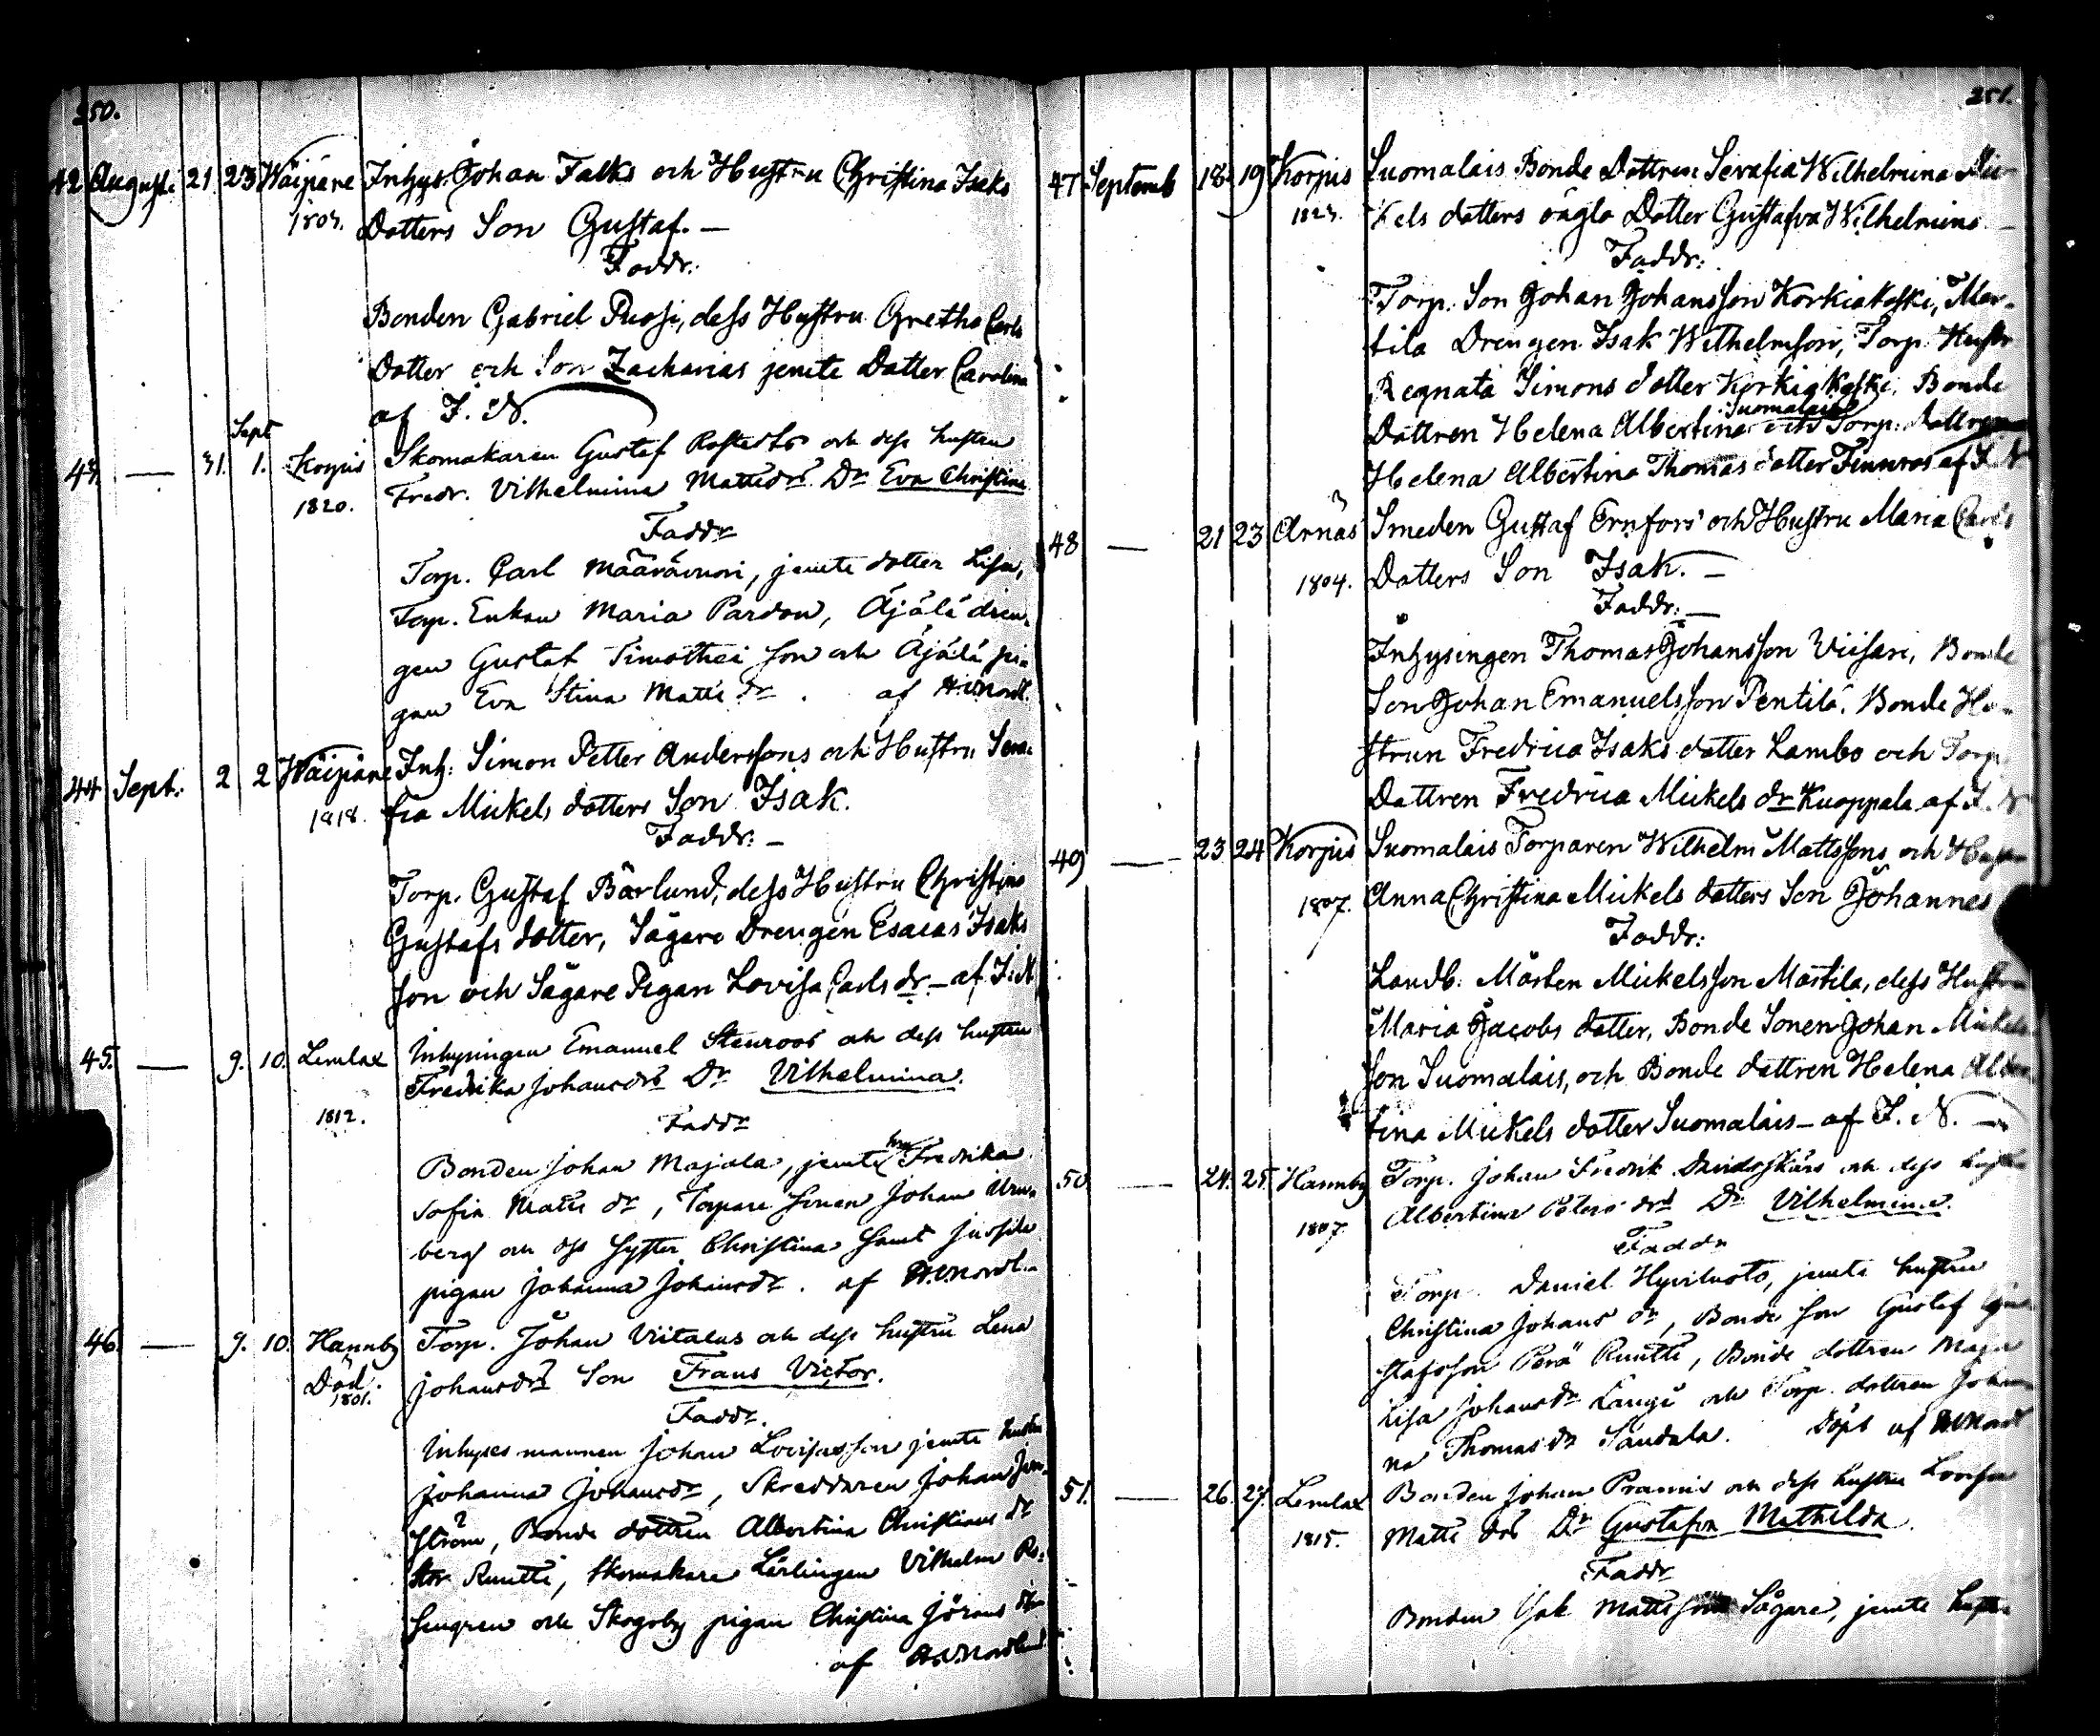 250.
42 August. 21 23 Wäipäre Inhys. Johan Falks och Hustru Christina Isaks
1803. Dotters Son Gustaf. —
Faddr:
Bonden Gabriel Puosi, dess Hustru Gretha Carls
Dotter och Son Zacharias jemte Dotter Carolina
af I. N.
Sept
43. — 31. 1. Korpis Skomakaren Gustaf Rostedts och dess hustru
1820. Fredr. Vilhelmina Mattsdrs Dr Eva Christina
Faddr
Torp. Carl Määrävuori, jemte dotter Lisa,
Torp. Enkan Maria Pardon, Äjälä dren-
gen Gustaf Timothei son och Äjälä pi-
gan Eva Stina Matts dr. af
44 Sept. 2 2 Wäipäre Inh: Simon Petter Anderssons och Hustru Sera-
1818. fia Mickels dotters Son Isak.
Faddr: —
Torp. Gustaf Bärlund, dess Hustru Christina
Gustafs dotter, Sågare Drengen Esaias Isaks
son och Sågare Pigan Lovisa Carls dr — af I. N.
45. — 9. 10. Lemlax Inhysingen Emanuel Stenroos och dess hustru
Fredrika Johansdrs Dr Vilhelmina.
1812.
Faddr
Bonden Johan Majala, jemte hru Fredrika
Sofia Matts dr, Torpare sonen Johan Urn-
berg och dess syster Christina samt Jussila
pigan Johanna Johansdr. af
46. — 9. 10. Hannby Torp. Johan Viitalas och dess hustru Lena
Död. Johansdrs Son Frans Victor.
1801.
Faddr.
Inhyses mannen Johan Lovisasson jemte hustru
Johanna Johansdr, Skreddaren Johan
ström, Bonde dottren Albertina Christians dr
Stor Ruutti, Skomakare Lärlingen Vilhelm Ro-
sengren och Skogsby pigan Christina Jörans dtr
af
251.
47 Septemb 18 19 Korpis Suomalais Bonde Dottren Serafia Wilhelmina Mic-
1823. kels dotters oägta Dotter Gustafva Wilhelmina —
Faddr:
Torp. Son Johan Johansson Korkiakoski, Mar-
tila Drengen Isak Wilhelmsson, Torp. Hustr
Regnata Simons dotter Korkiakoski, Bonde
Dottren Helena Albertina Suomalais och Torp: dottren
Helena Albertina Thomas dotter Finnros af I. N
48 — 21 23 Arnäs Smeden Gustaf Ernfors och Hustru Maria Carls
1804. Dotters Son Isak. —
Faddr: —
Inhysingen Thomas Johansson Viisari, Bonde
Son Johan Emanuelsson Pentilä. Bonde Hu-
strun Fredrica Isaks dotter Lambo och Torp
Dottren Fredrica Mickels dr Kuoppala af I. N
49 — 23 24 Korpis Suomalais Torparen Wilhelm Mattssons och Hustru
1807. Anna Christina Mickels dotters Son Johannes
Faddr:
Landb: Mårten Mickelsson Mårtila, dess Hustru
Maria Jacobs dotter, Bonde Sonen Johan Mickels
Son Suomalais, och Bonde dottren Helena Alber
tina Mickels dotter Suomalais — af I. N. —
50. — 24. 25. Hannby Torp. Johan Fredrik Davidsskärs och dess hustru
1807. Albertina Peters drs Dr Vilhelmina.
Faddr
Torp. Daniel Hyviluoto, jemte hustru
Christina Johans dr, Bonde son Gustaf Gu
stafsson Perä Ruutti, Bonde dottren Maja
Lisa Johansdr Langi och Torp. dottren Johan
na Thomasdr Sandala. Döpt af
51. — 26. 27. Lemlax Bonden Johan Prannis och dess hustru Lovisa
1815. Matts drs Dr Gustafva Mathilda.
Faddr
Bonden Isak Mattsson Sågare, jemte hustru